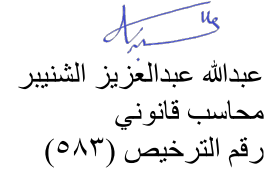 عبدالله عبدالعزيز الشنيبر
محاسب قانوني
رقم الترخيص (٥٨٣)